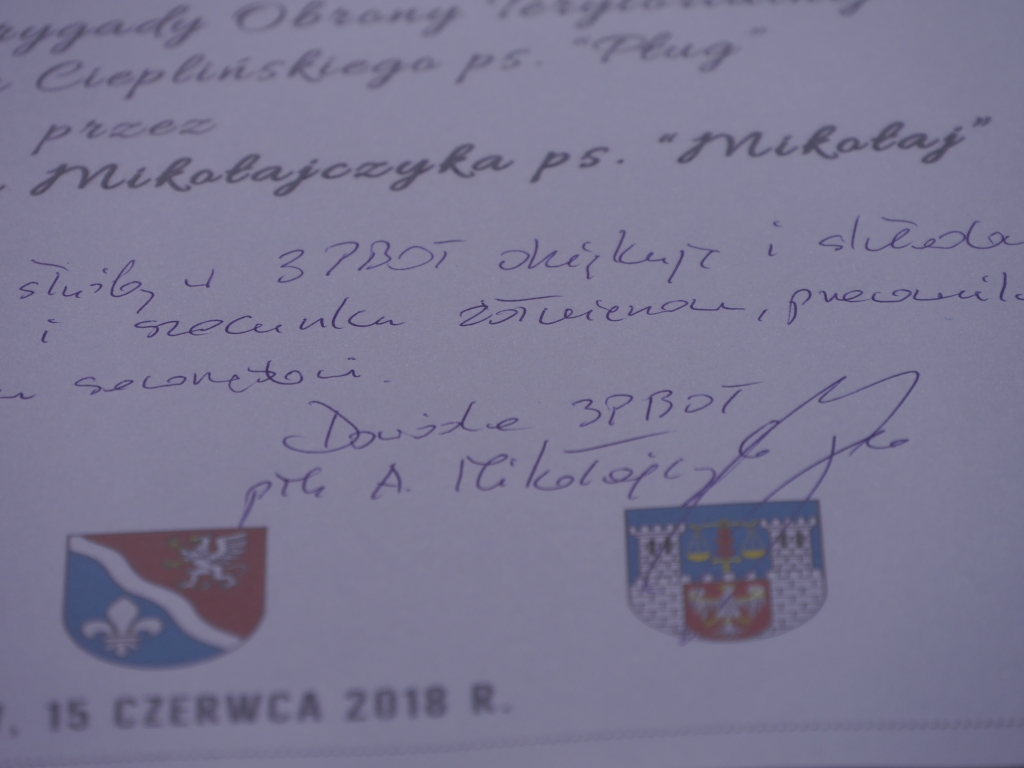 rygady Obrony Terytorialnej
Cieplińskiego ps. "Pług"
przez
Mikołajczyka ps. "Mikołaj"
służby w 3 PBOT dziękuję i składa
i szacunku żołnierzom, pracownik
Dowódca 3PBOT
płk A. Mikołajczyk
15 CZERWCA 2018 R.